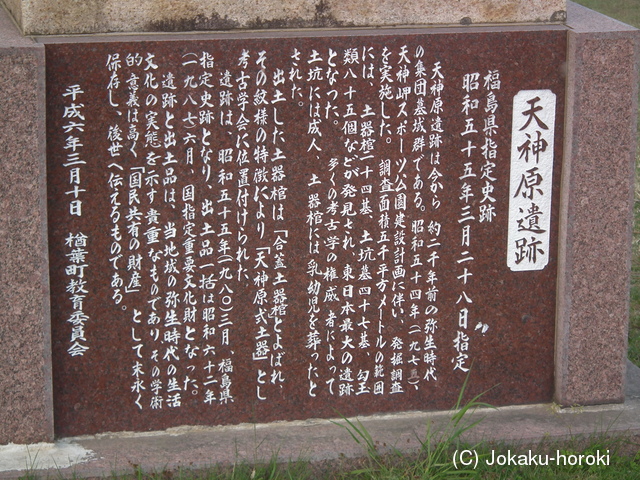 天神原遺跡
福島県指定史跡
昭和五十五年三月二十八日指定
天神原遺跡は今から 約二千年前の弥生時代
の集団墓域群である。昭和五十四年(一九七五)、
天神岬スポーツ公園建設計画に伴い、発掘調査
を実施した。 調査面積五千平方メートルの範囲
には、土器棺二十四基、土坑墓四十七基、勾玉
類八十五個などが発見され、東日本最大の遺跡
となった。 多くの考古学の権威者によって
土坑には成人、土器棺には乳幼児を葬ったと
された。
出土した土器棺は「合蓋土器棺」とよばれ、
その紋様の特徴により「天神原式土器」とし
考古学会に位置付けられた。
遺跡は、昭和五十五年(一九八〇)三月、福島県
指定史跡となり、出土品一括は昭和六十二年
(一九八七)六月、国指定重要文化財となった。
遺跡と出土品は、当地域の弥生時代の生活
文化の実態を示す貴重なものであり、その学術
的意義は高く「国民共有の財産」として末永く
保存し、後世へ伝えるものである。
平成六年三月十日 楢葉町教育委員会
(C) Jokaku-horoki